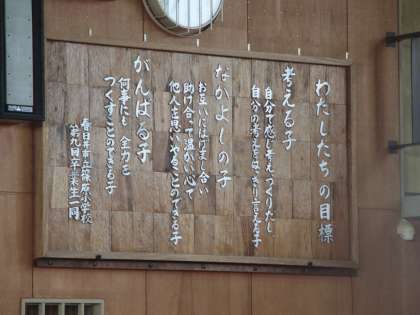 わたしたちの目標
考える子
自分で感じ考え、つくりだし
自分の考えをはっきり言える子
なかよしの子
お互いにはげまし合い
助け合って温かい心で
他人を思いやることのできる子
がんばる子
何事にも全力を
つくすことのできる子
春日井市立篠原小学校
第九回卒業生一同